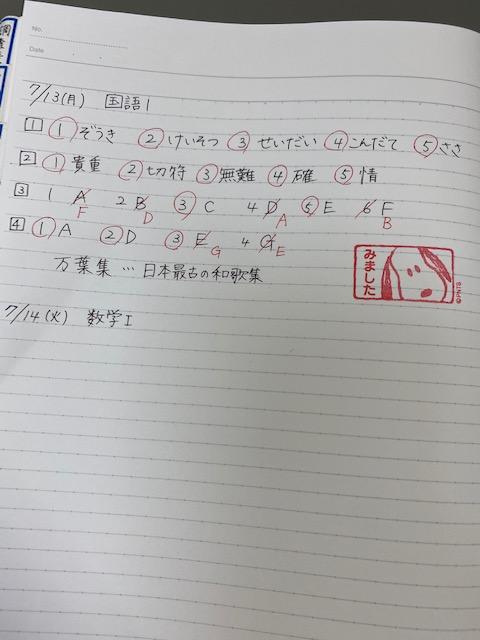 No.
Date
7/13(月) 国語1
1 ① ぞうき ② けいそつ ③ せいだい ④ こんだて ⑤ ささ
2 ① 貴重 ② 切符 ③ 無難 ④ 確 ⑤ 情
3 1 A F 2 B D ③ C 4 D A ⑤ E 6 F B
4 ① A ② D ③ E G 4 G E
万葉集…日本最古の和歌集
みました
7/14(火) 数学I